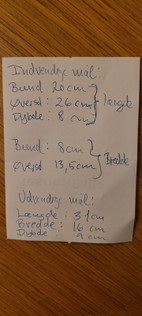 Indvendig mål:
Bund 20cm
Øverst: 26cm } længde
Dybde: 8 cm
Bund: 8cm
Øverst 13,5cm } Bredde
Udvendig mål:
Længde: 31cm
Bredde: 16 cm
Dybde 9 cm